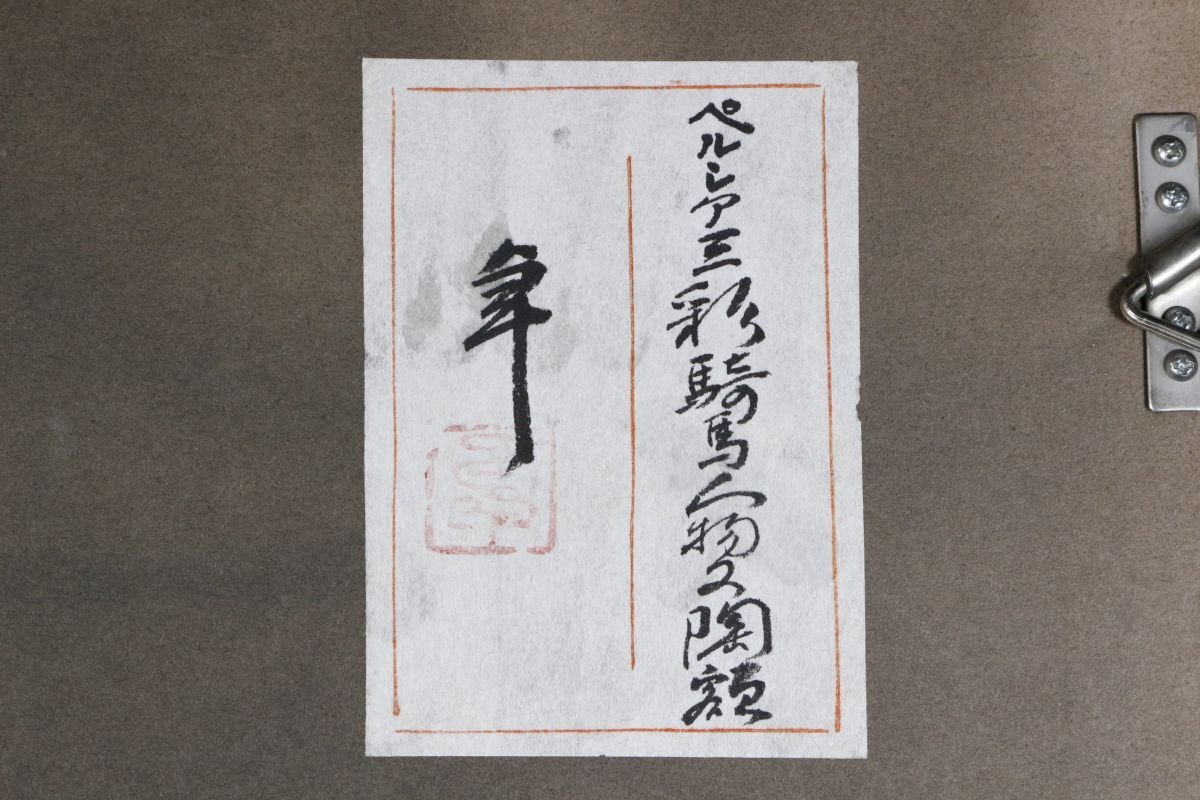 ペルシア三彩騎馬人物文陶額